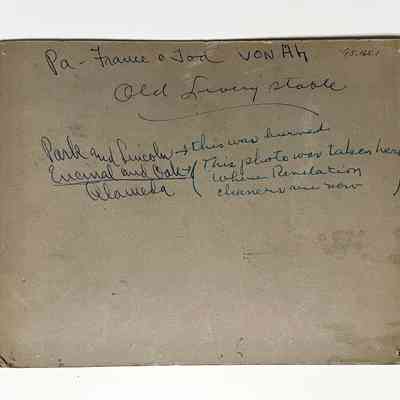 Pa - France & Joe VON Ah
Old Livery stable
Park and Lincoln → this was burned
Encinal and Oak → (This photo was taken here
Alameda where Revelation
cleaners are now)